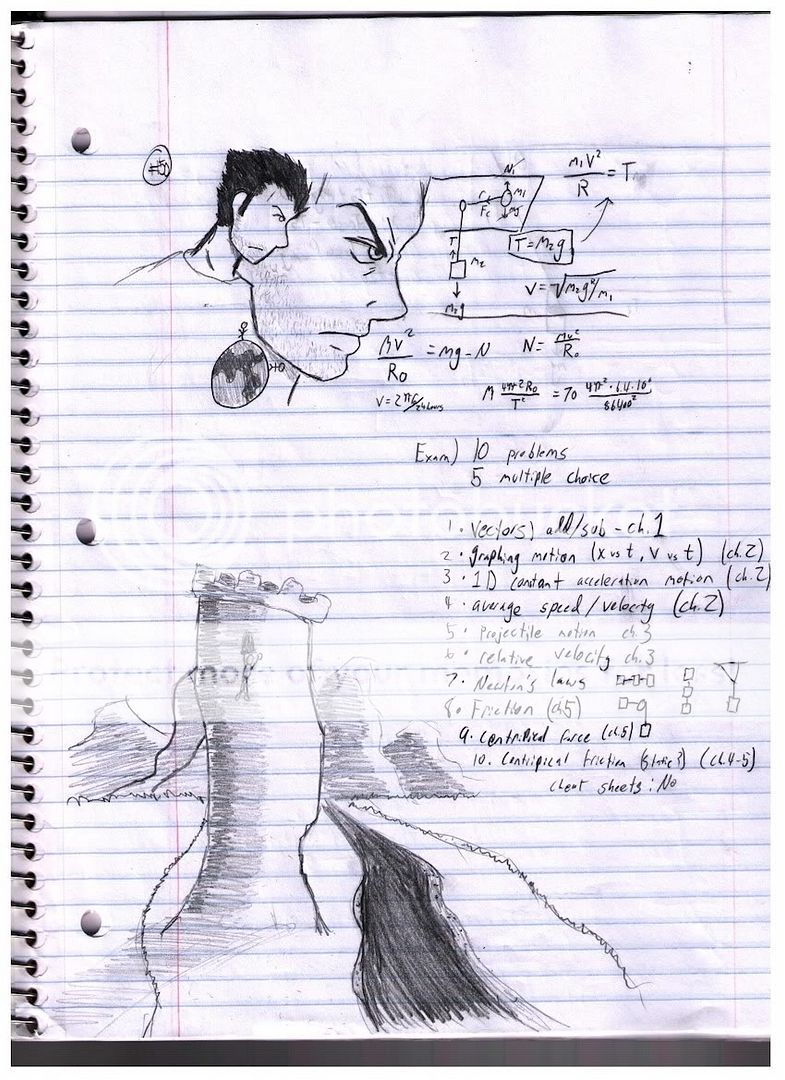 #5
N₁
m₁v²/R = T
Fc m₁
m₁g
T
T = m₂g
m₂
v = √m₂gR/m₁
m₂g
Mv²/R₀ = mg - N
N = mv²/R₀
v = 2πR/24hours
M 4π²R₀/T² = 70 4π² · 6.4 · 10⁶/86400²
Exam) 10 problems
5 multiple choice
1 · Vectors) add/sub - ch. 1
2 · graphing motion (x vs t, v vs t) (ch. 2)
3 · 1D constant acceleration motion (ch. 2)
4 · average speed/velocity (ch. 2)
5 · projectile motion ch. 3
6 · relative velocity ch. 3
7 · Newton's laws
8 · Friction (ch5)
9 · Centripical force (ch.5)
10. Centripical friction (static?) (ch. 4-5)
cheat sheets: No